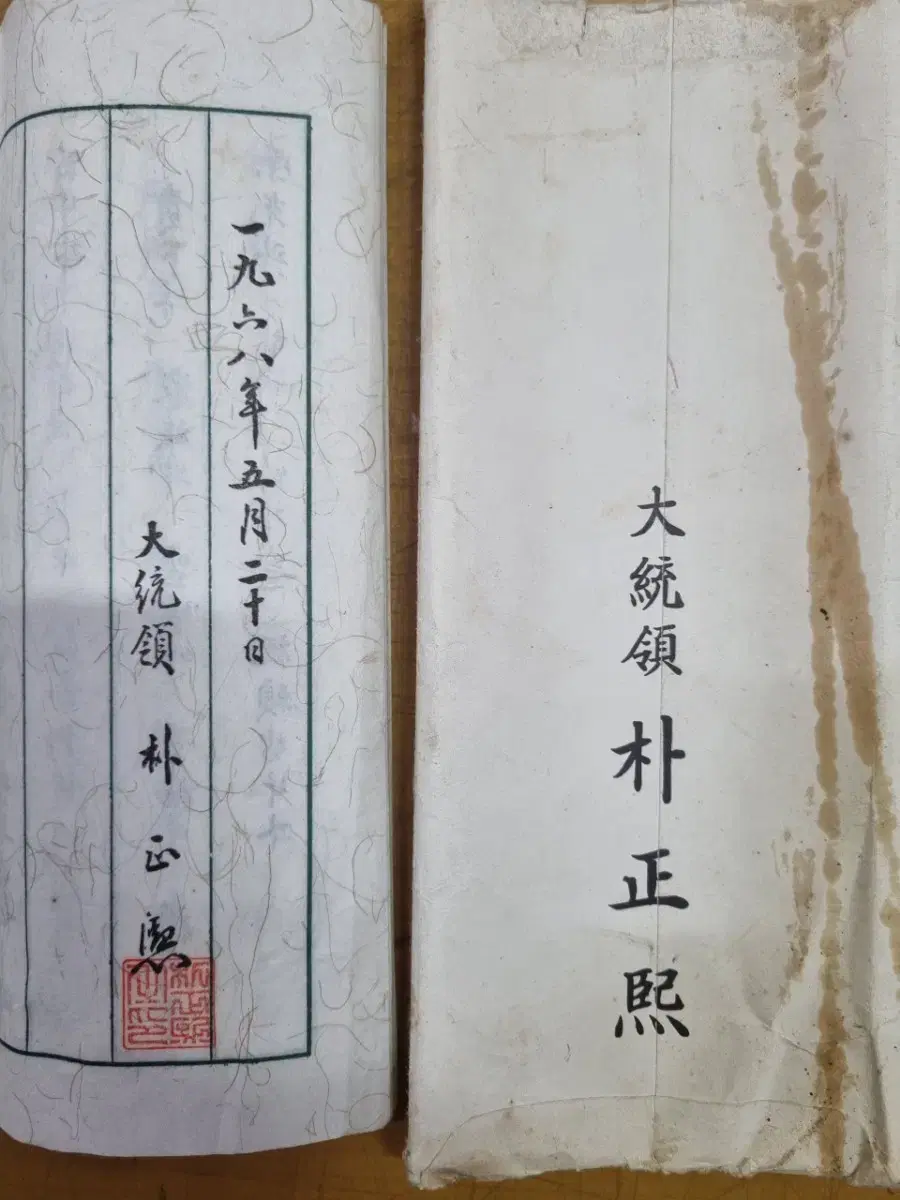 一九六八年五月二十日
大統領 朴正熙
大統領 朴正熙